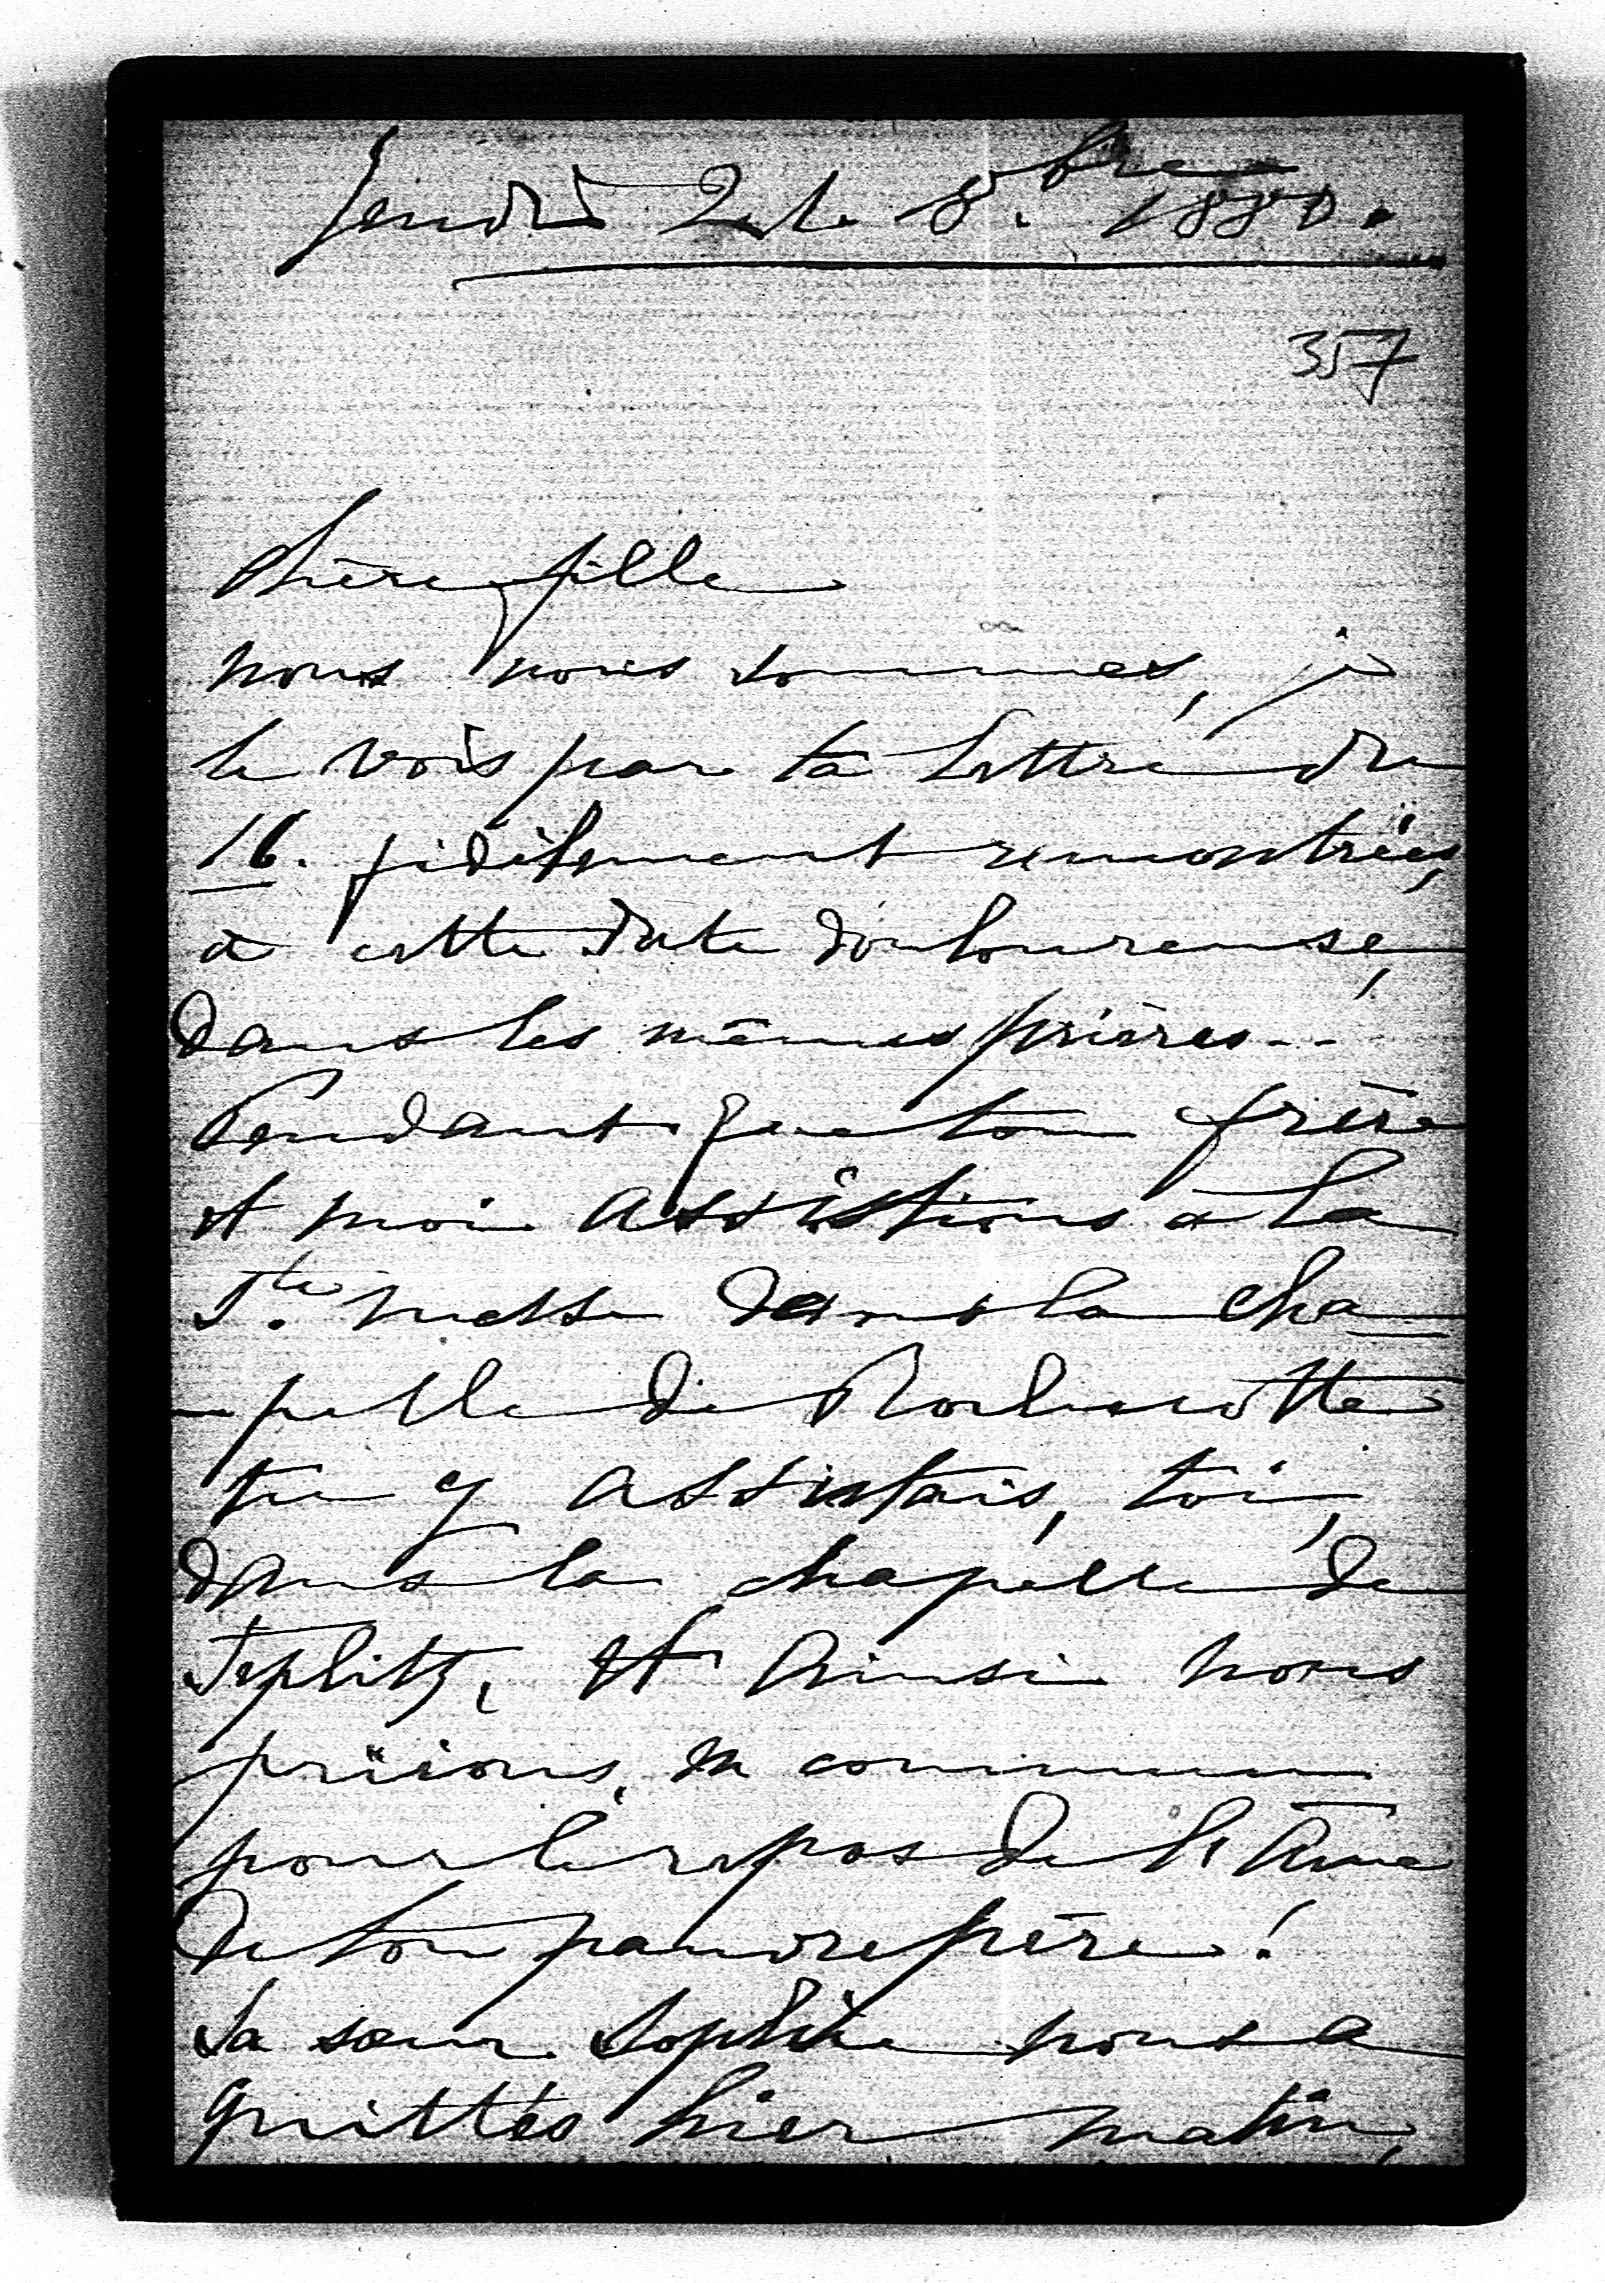 Jeudi 21 8.bre 1880.
357
Chère fille
nous nous sommes, je
le vois par ta lettre du
16. fidèlement rencontrées,
à cette date douloureuse,
dans les mêmes prières...
Pendant que ton frère
et moi assistions à la
Ste. messe dans la cha-
-pelle de Rochecotte
tu y assistais, toi,
dans la chapelle de
Teplitz, et ainsi nous
priions, en commun
pour le repos de l'âme
de ton pauvre père!
Sa sœur Sophie nous a
quittés hier matin,